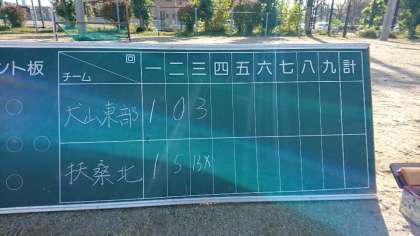 ント板
回
チーム 一 二 三 四 五 六 七 八 九 計
犬山東部 1 0 3
扶桑北 1 5 13X